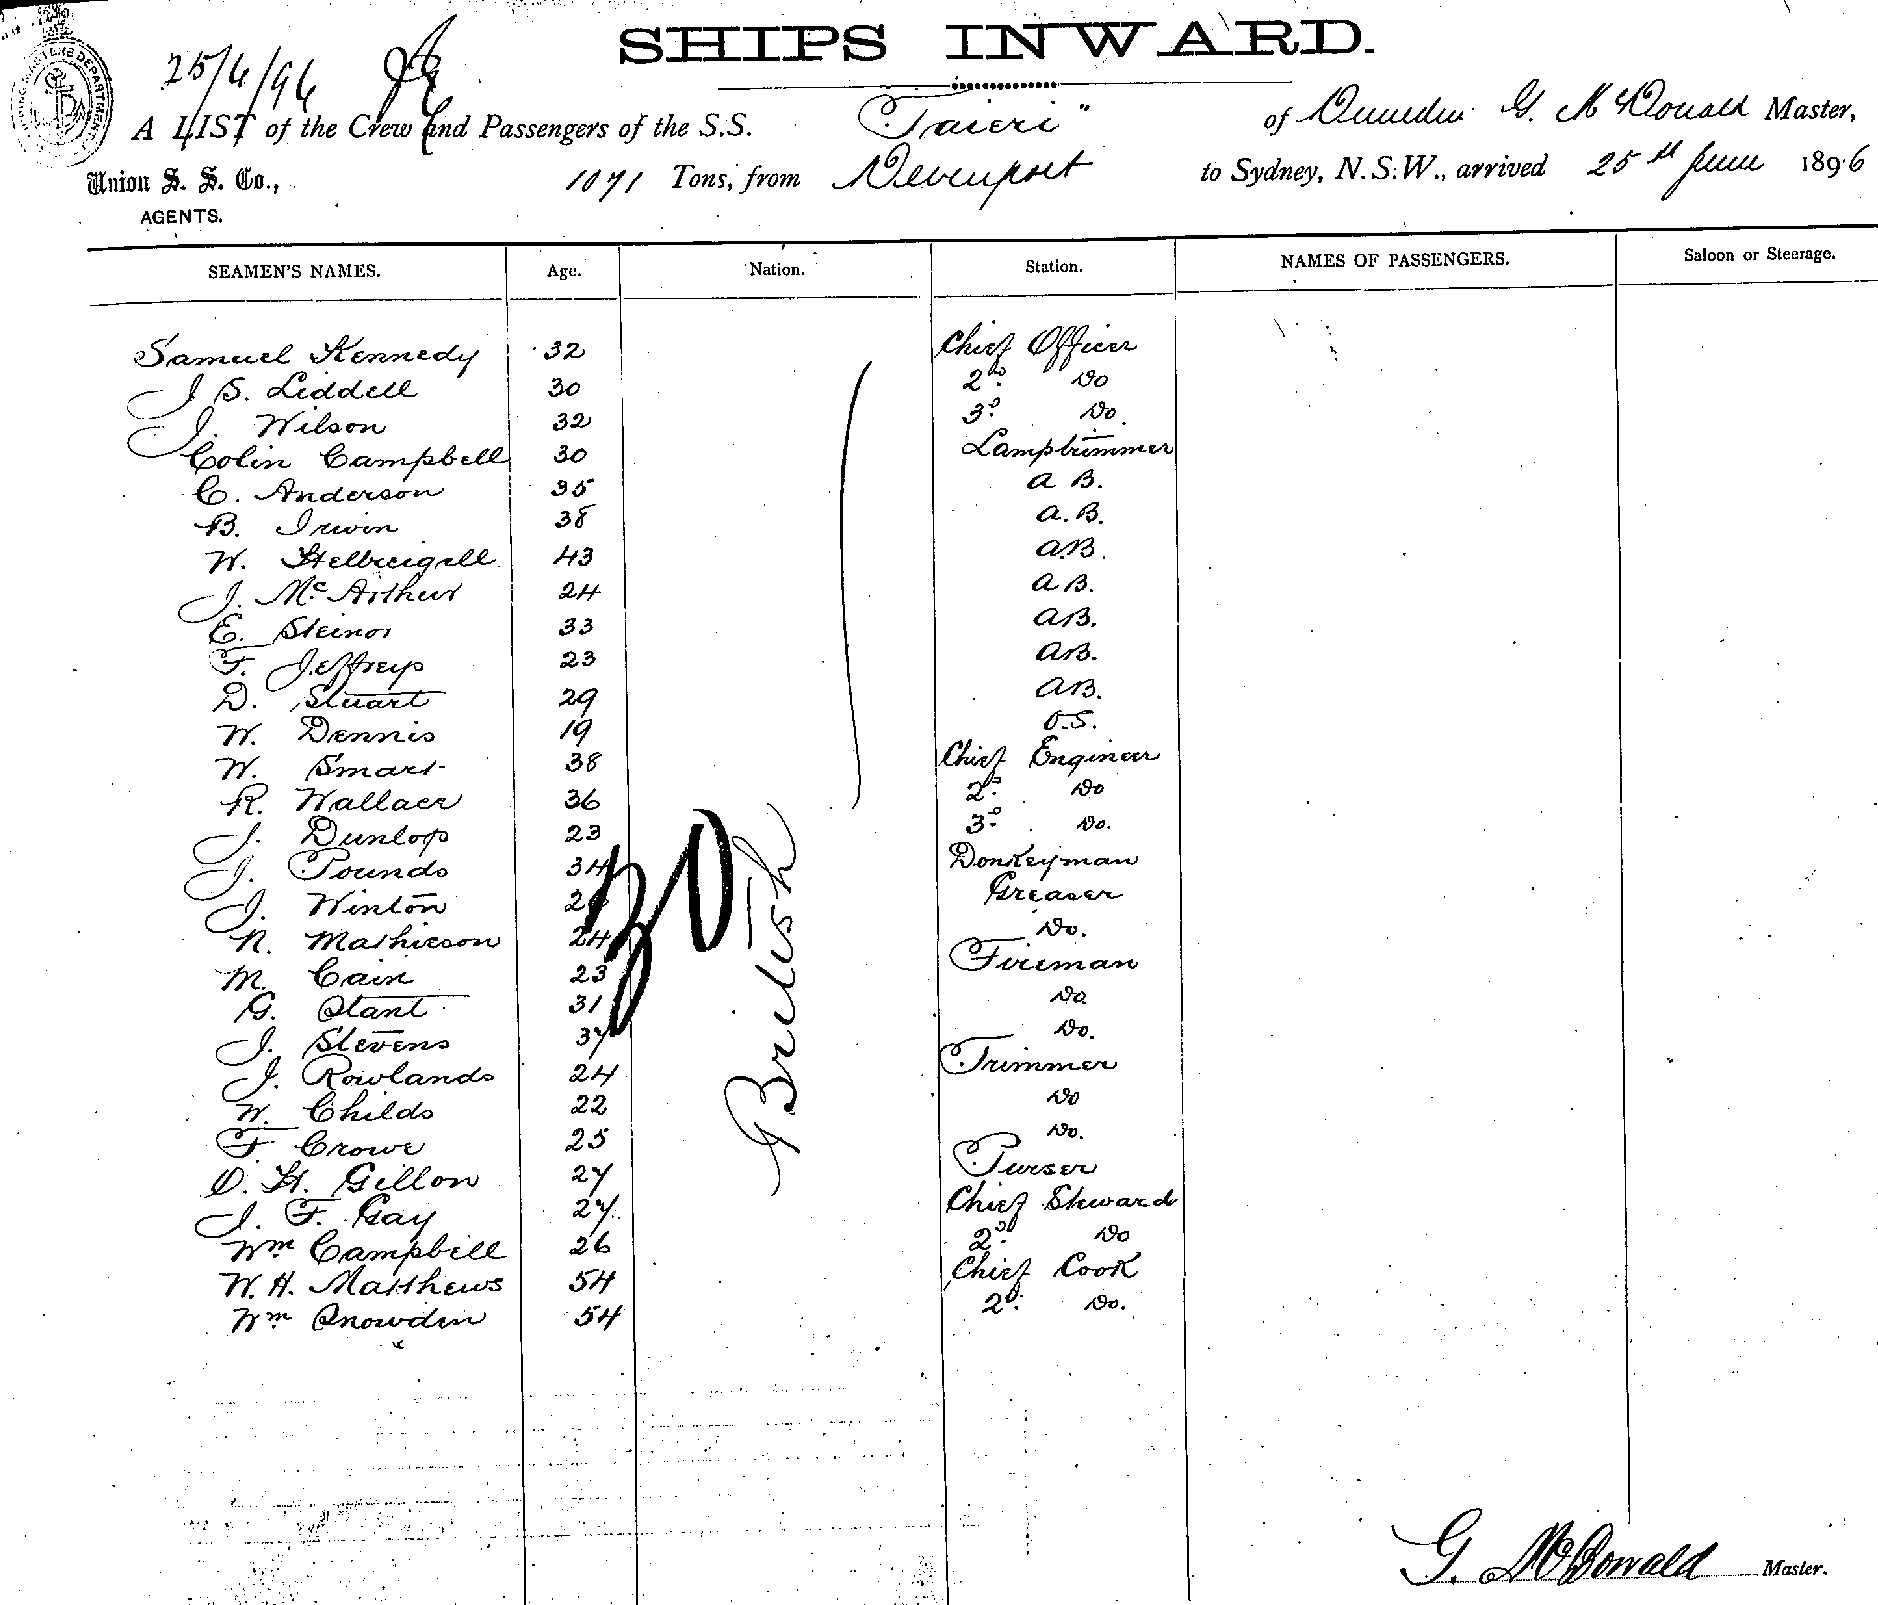 SHIPS INWARD.
25/6/96
A LIST of the Crew and Passengers of the S.S. "Taieri" of Dunedin G. McDonald Master,
Union S. S. Co., 1071 Tons, from Devenport to Sydney, N.S.W., arrived 25th June 1896
AGENTS.
SEAMEN'S NAMES. Age. Nation. Station. NAMES OF PASSENGERS. Saloon or Steerage.
Samuel Kennedy 32 Chief Officer
J S. Liddell 30 2nd Do
J. Wilson 32 3d Do
Colin Campbell 30 Lamptrimmer
C. Anderson 35 A B.
B. Irwin 38 A.B.
W. 43 A.B.
J. McArthur 24 A B.
E. Steinor 33 A.B.
F. Jeffreys 23 A.B.
D. Stuart 29 A.B.
W. Dennis 19 O.S.
W. Smart 38 Chief Engineer
R. Wallace 36 2d Do
J. Dunlop 23 3d Do.
J. Pounds 34 Donkeyman
J. Winton Greaser
N. Mathieson 24 Do.
M. Cain 23 Fireman
G. Stant 31 Do
J. Stevens 37 Do.
J. Rowlands 24 Trimmer
W. Childs 22 Do
F. Crowe 25 Do.
D. H. Gillon 27 Purser
J. F. Gay 27 Chief Steward
Wm Campbell 26 2d Do
W. H. Matthews 54 Chief Cook
Wm Snowden 54 2d Do.
30
British
G. McDonald Master.